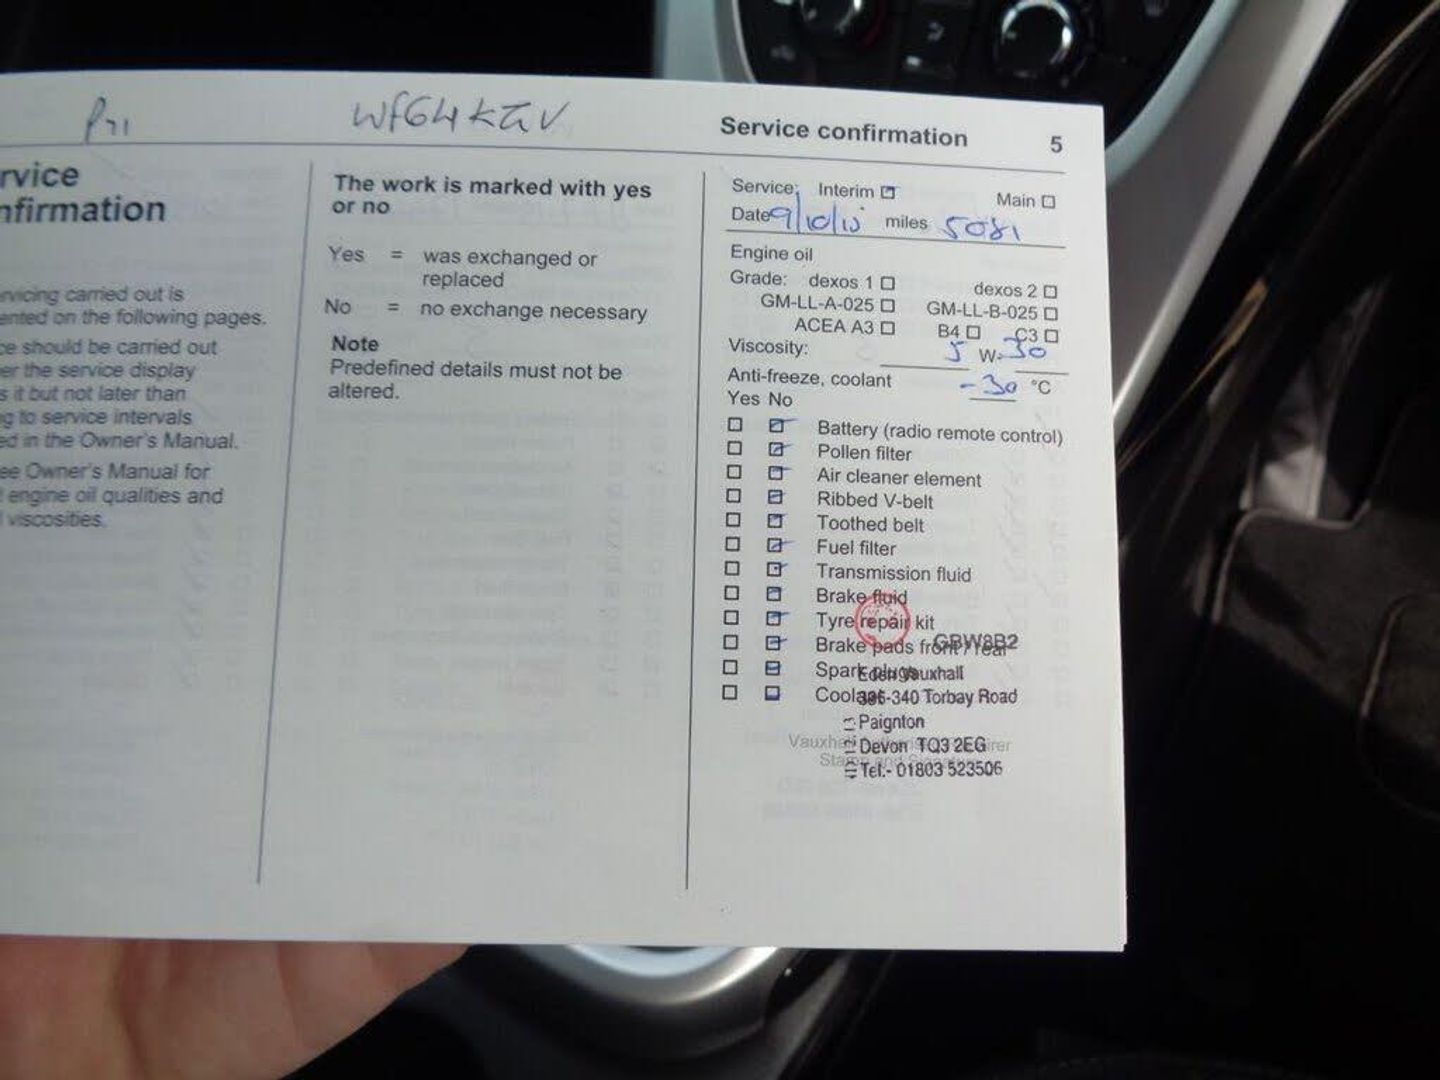 WF64KGV
Service confirmation 5
rvice
nfirmation
ervicing carried out is
ented on the following pages.
ce should be carried out
er the service display
s it but not later than
g to service intervals
ed in the Owner's Manual.
ee Owner's Manual for
engine oil qualities and
viscosities.
The work is marked with yes
or no
Yes = was exchanged or
replaced
No = no exchange necessary
Note
Predefined details must not be
altered.
Service: Interim Main
Date 9/10/15 miles 5081
Engine oil
Grade: dexos 1 dexos 2
GM-LL-A-025 GM-LL-B-025
ACEA A3 B4 C3
Viscosity: 5 W-30
Anti-freeze, coolant -30 °C
Yes No
Battery (radio remote control)
Pollen filter
Air cleaner element
Ribbed V-belt
Toothed belt
Fuel filter
Transmission fluid
Brake fluid
Tyre repair kit
Brake pads front / rear
GBW8B2
Spark plugs
Eden Vauxhall
Coolant
-340 Torbay Road
Paignton
Vauxhall
Devon TQ3 2EG
Stamp and Signature
Tel.- 01803 523506